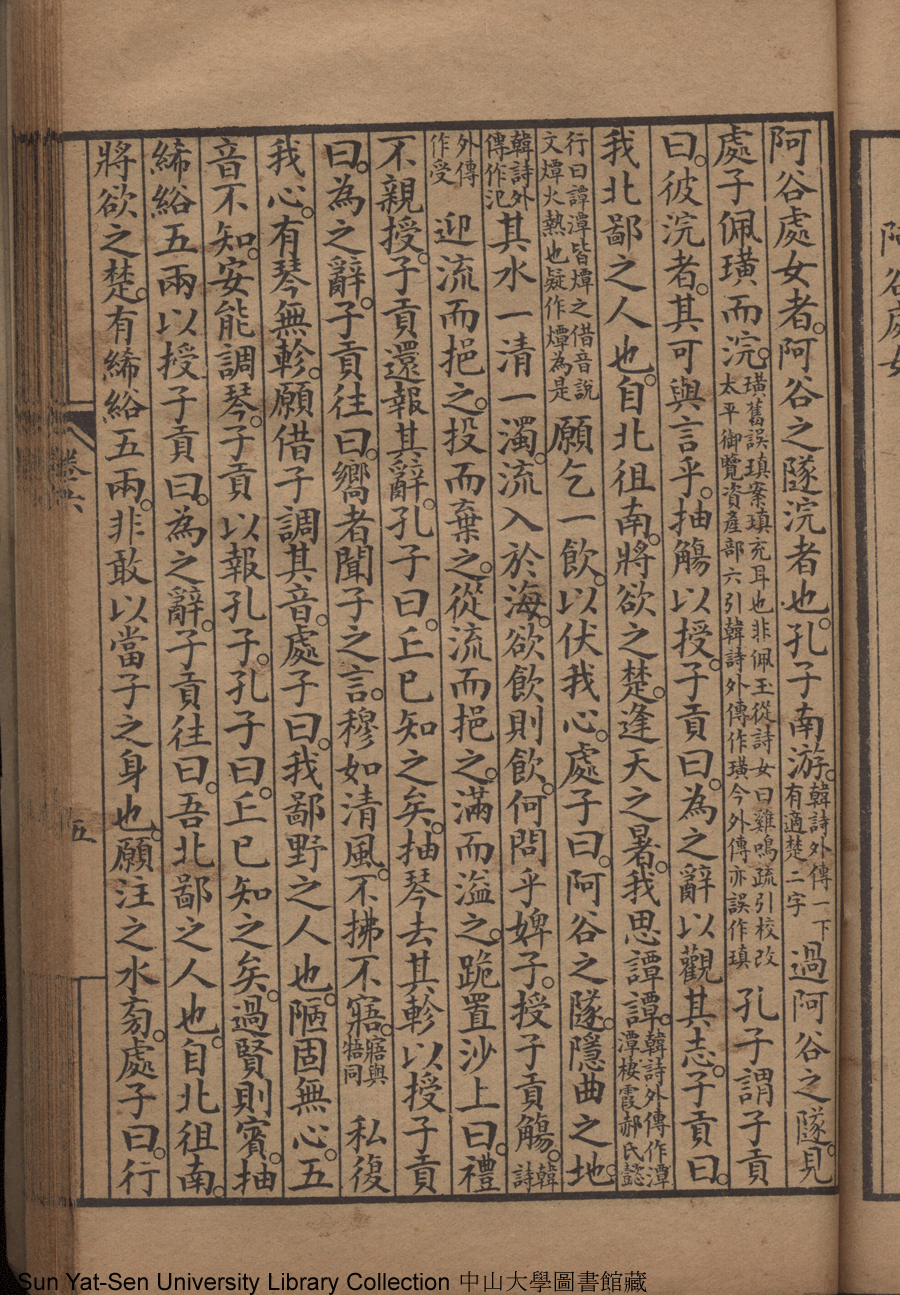 阿谷處女者。阿谷之隧浣者也。孔子南游。韓詩外傳一下有適楚二字過阿谷之隧。見
處子佩璜而浣。璜舊誤瑱案瑱充耳也非佩玉從詩女曰雞鳴疏引校改太平御覽資產部六引韓詩外傳作璜今外傳亦誤作瑱孔子謂子貢
曰。彼浣者。其可與言乎。抽觴以授。子貢曰。為之辭以觀其志。子貢曰。
我北鄙之人也。自北徂南。將欲之楚。逢天之暑。我思譚譚。韓詩外傳作潭潭棲霞郝氏懿
行曰譚潭皆燂之借音說文燂火熱也疑作燂為是願乞一飲。以伏我心。處子曰。阿谷之隧。隱曲之地。
韓詩外傳作氾其水一清一濁。流入於海。欲飲則飲。何問乎婢子。授子貢觴。韓詩
外傳作受迎流而挹之。投而棄之。從流而挹之。滿而溢之。跪置沙上曰。禮
不親授。子貢還報其辭。孔子曰。丘已知之矣。抽琴去其軫以授子貢
曰。為之辭。子貢往曰。嚮者聞子之言。穆如清風。不拂不寤。寤與牾同私復
我心。有琴無軫。願借子調其音。處子曰。我鄙野之人也。陋固無心。五
音不知。安能調琴。子貢以報孔子。孔子曰。丘已知之矣。過賢則賓。抽
絺綌五兩以授子貢曰。為之辭。子貢往曰。吾北鄙之人也。自北徂南。
將欲之楚。有絺綌五兩。非敢以當子之身也。願注之水旁。處子曰。行
卷六
五
阿谷處女
Sun Yat-Sen University Library Collection 中山大學圖書館藏